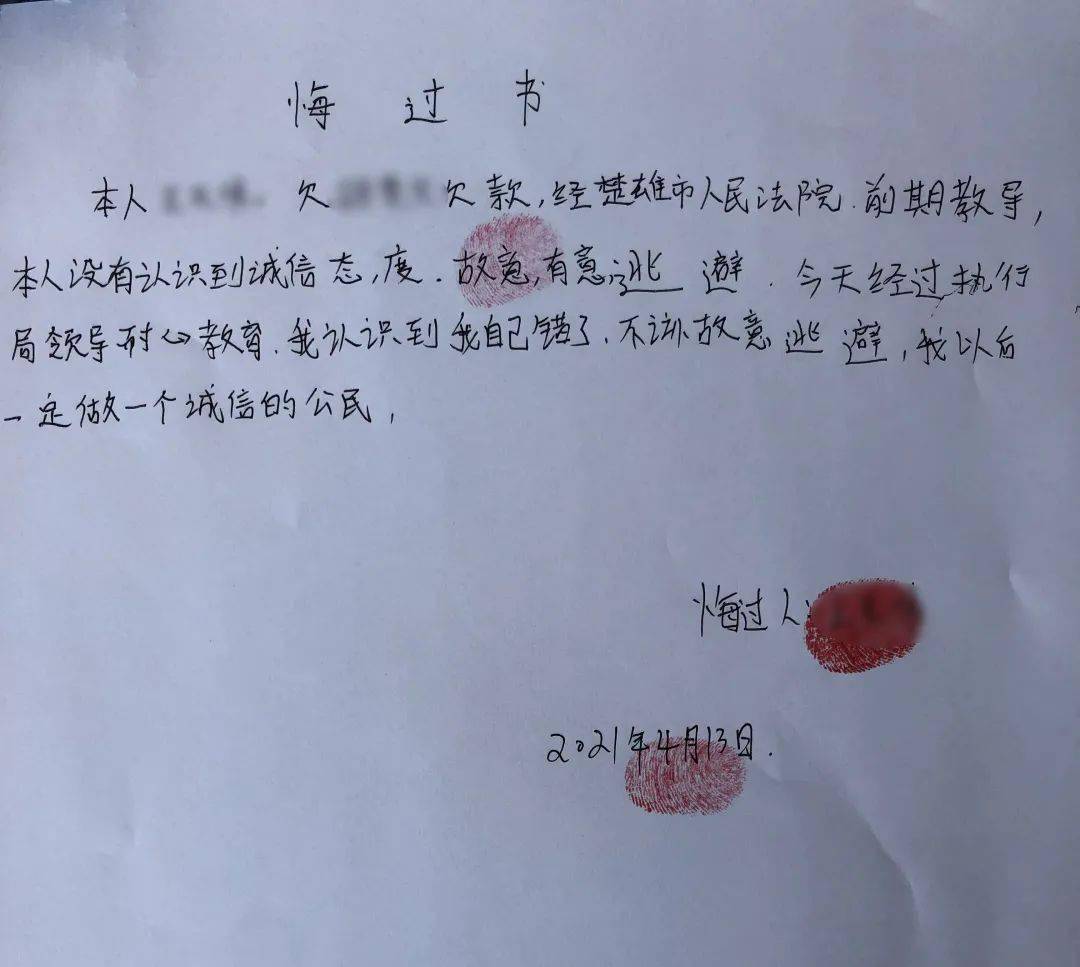 悔过书
本人 欠 欠款,经楚雄市人民法院.前期教导,
本人没有认识到诚信态,度.故意,有意逃避.今天经过执行
局领导耐心教育.我认识到我自己错了.不该故意逃避,我以后
一定做一个诚信的公民,
悔过人:
2021年4月13日.